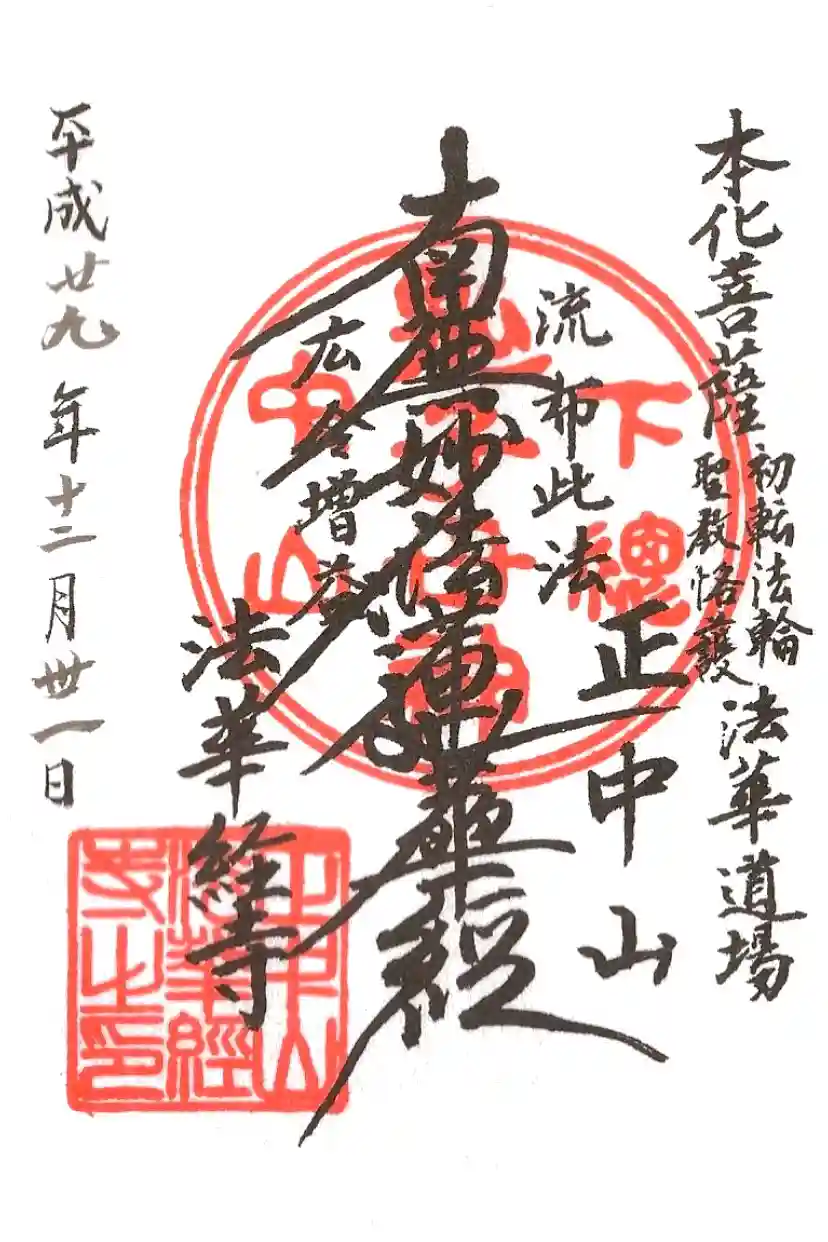 本化菩薩
初転法輪
聖教恪護
法華道場
正中山
流布此法
南無妙法蓮華経
広令増益
法華経寺
平成廿九年十二月卅一日
下總
中山
正中山
法華經
寺之印